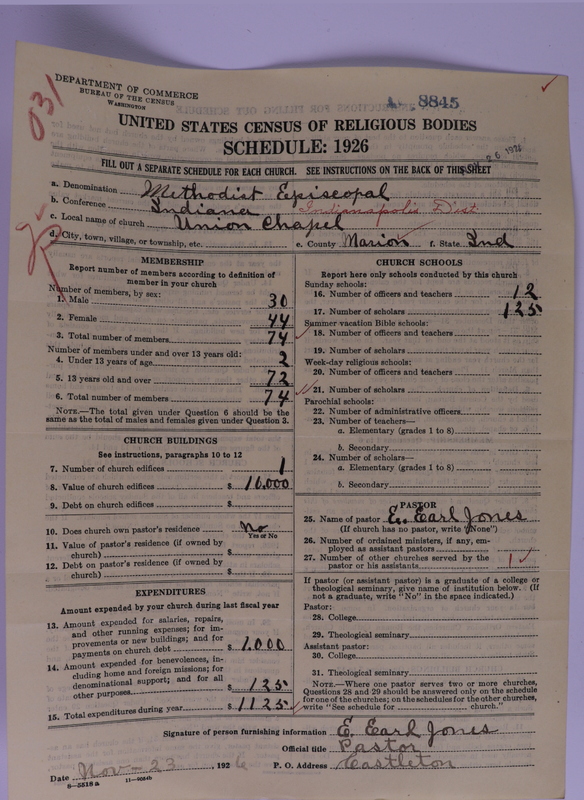 DEPARTMENT OF COMMERCE
BUREAU OF THE CENSUS
WASHINGTON
031
A 8845
UNITED STATES CENSUS OF RELIGIOUS BODIES
SCHEDULE: 1926
26 1926
FILL OUT A SEPARATE SCHEDULE FOR EACH CHURCH. SEE INSTRUCTIONS ON THE BACK OF THIS SHEET
a. Denomination Methodist Episcopal
b. Conference Indiana Indianapolis Dist
c. Local name of church Union Chapel
d. City, town, village, or township, etc. e. County Marion f. State Ind
MEMBERSHIP
Report number of members according to definition of
member in your church
Number of members, by sex:
1. Male 30
2. Female 44
3. Total number of members 74
Number of members under and over 13 years old:
4. Under 13 years of age 2
5. 13 years old and over 72
6. Total number of members 74
NOTE.—The total given under Question 6 should be the
same as the total of males and females given under Question 3.
CHURCH BUILDINGS
See instructions, paragraphs 10 to 12
7. Number of church edifices 1
8. Value of church edifices $10.000
9. Debt on church edifices $
10. Does church own pastor's residence No
Yes or No
11. Value of pastor's residence (if owned by
church) $
12. Debt on pastor's residence (if owned by
church) $
EXPENDITURES
Amount expended by your church during last fiscal year
13. Amount expended for salaries, repairs,
and other running expenses; for im-
provements or new buildings; and for
payments on church debt $1.000
14. Amount expended for benevolences, in-
cluding home and foreign missions; for
denominational support; and for all
other purposes $125
15. Total expenditures during year $1125
CHURCH SCHOOLS
Report here only schools conducted by this church
Sunday schools:
16. Number of officers and teachers 12
17. Number of scholars 125
Summer vacation Bible schools:
18. Number of officers and teachers
19. Number of scholars
Week-day religious schools:
20. Number of officers and teachers
21. Number of scholars
Parochial schools:
22. Number of administrative officers
23. Number of teachers—
a. Elementary (grades 1 to 8)
b. Secondary
24. Number of scholars—
a. Elementary (grades 1 to 8)
b. Secondary
PASTOR
25. Name of pastor E. Earl Jones
(If church has no pastor, write "None")
26. Number of ordained ministers, if any, em-
ployed as assistant pastors
27. Number of other churches served by the
pastor or his assistants 1
If pastor (or assistant pastor) is a graduate of a college or
theological seminary, give name of institution below. (If
not a graduate, write "No" in the space indicated.)
Pastor:
28. College
29. Theological seminary
Assistant pastor:
30. College
31. Theological seminary
NOTE.—Where one pastor serves two or more churches,
Questions 28 and 29 should be answered only on the schedule
for one of the churches; on the schedules for the other churches,
write "See schedule for church."
Signature of person furnishing information E. Earl Jones
Official title Pastor
Date Nov-23, 1926 P. O. Address Castleton
8-5518a 11-9054b